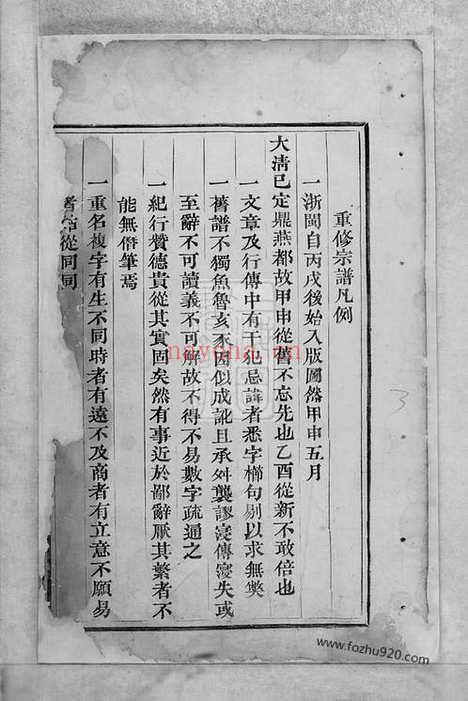 重修宗譜凡例
一浙閩自丙戌後始入版圖然甲申五月
大清已定鼎燕都故甲申從舊不忘先也乙酉從新不敢倍也
一文章及行傳中有干犯忌諱者悉字櫛句剔以求無獘
一舊譜不獨魚魯亥豕因似成訛且承舛襲謬寖傳寖失或
至辭不可讀義不可解故不得不易數字疏通之
一紀行贊德貴從其實固矣然有事近於鄙辭厭其繁者不
能無僭筆焉
一重名複字有生不同時者有遠不及商者有立意不願易
者從同同
3
nayona.cn
www.fozhu920.com